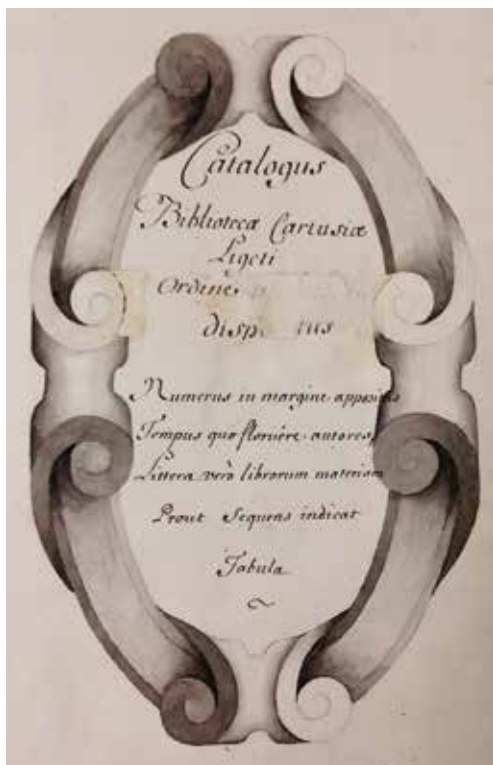 Catalogus
Bibliotecæ Cartusiæ
Ligeti
Ordine
disp tus
Numerus in margine appositus
Tempus quo floruêre autores,
Littera verò librorum materiam
Prout Sequens indicat
Tabula